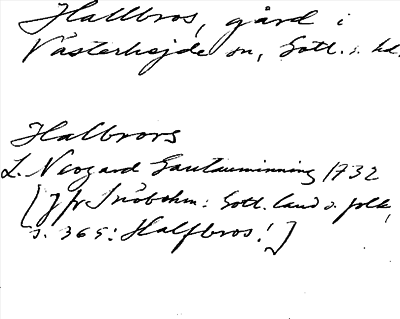 Hallbros, gård i
Västerhejde sn, Gotl. s. hd.
Halbrors
L. Neogard Gautauminning 1732
[Jfr Snöbohm: Gotl. land o. folk,
s. 365: Halfbros!]